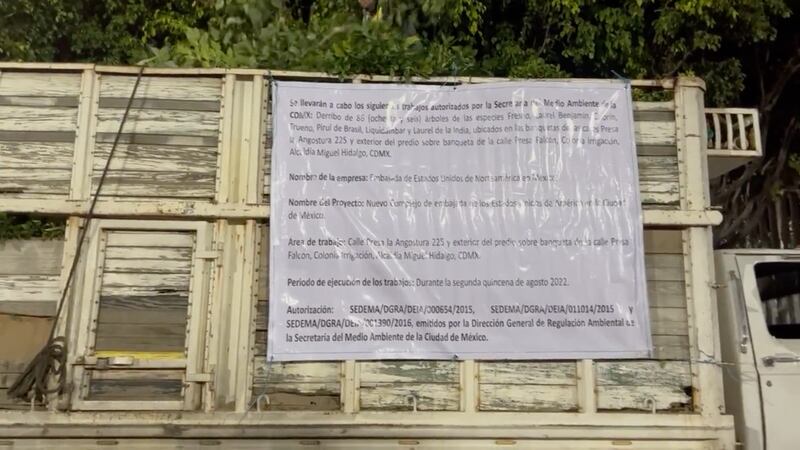 Se llevarán a cabo los siguientes trabajos autorizados por la Secretaría del Medio Ambiente de la
CDMX: Derribo de 86 (ochenta y seis) árboles de las especies Fresno, Laurel Benjamín, Colorín,
Trueno, Pirul de Brasil, Liquidámbar y Laurel de la India, ubicados en las banquetas de las calles Presa
la Angostura 225 y exterior del predio sobre banqueta de la calle Presa Falcón, Colonia Irrigación,
Alcaldía Miguel Hidalgo, CDMX.
Nombre de la empresa: Embajada de Estados Unidos de Norteamérica en México.
Nombre del Proyecto: Nuevo Complejo de embajada de los Estados Unidos de América en la Ciudad
de México.
Área de trabajo: Calle Presa la Angostura 225 y exterior del predio sobre banqueta de la calle Presa
Falcón, Colonia Irrigación, Alcaldía Miguel Hidalgo, CDMX.
Periodo de ejecución de los trabajos: Durante la segunda quincena de agosto 2022.
Autorización: SEDEMA/DGRA/DEIA/000654/2015, SEDEMA/DGRA/DEIA/011014/2015 y
SEDEMA/DGRA/DEIA/001390/2016, emitidos por la Dirección General de Regulación Ambiental de
la Secretaría del Medio Ambiente de la Ciudad de México.